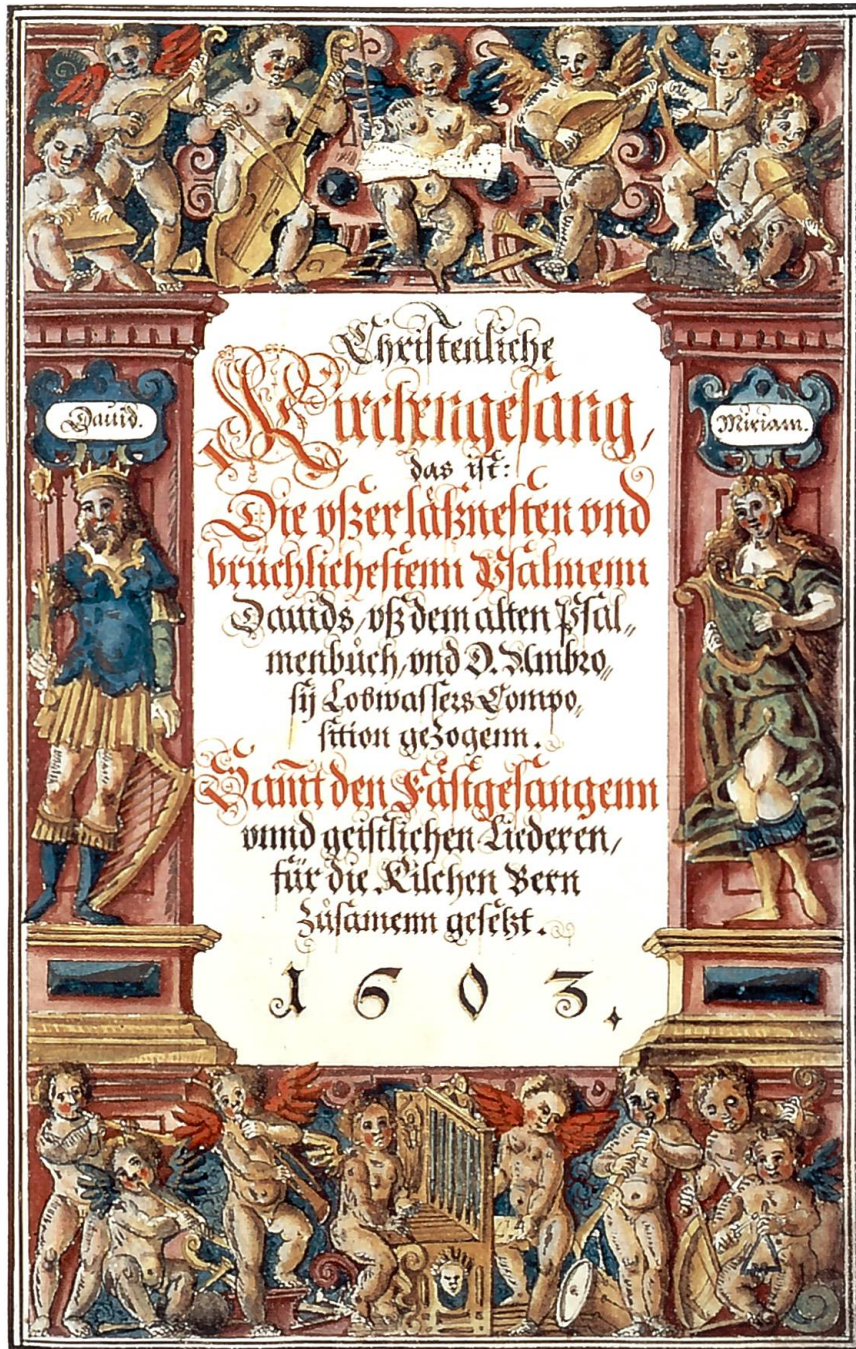 Christenliche
Kirchengesäng,
das ist:
Die vßerläßnesten vnd
brüchlichestenn Psalmenn
Dauids, vß dem alten Psal„
menbůch, vnd D. Ambro„
sij Lobwassers Compo„
sition gezogenn.
Sam̃t den Fästgesangenn
vnnd geistlichen Liederen,
für die Kilchen Bern
Zůsamenn gesetzt.
1603.
Dauid.
Miriam.